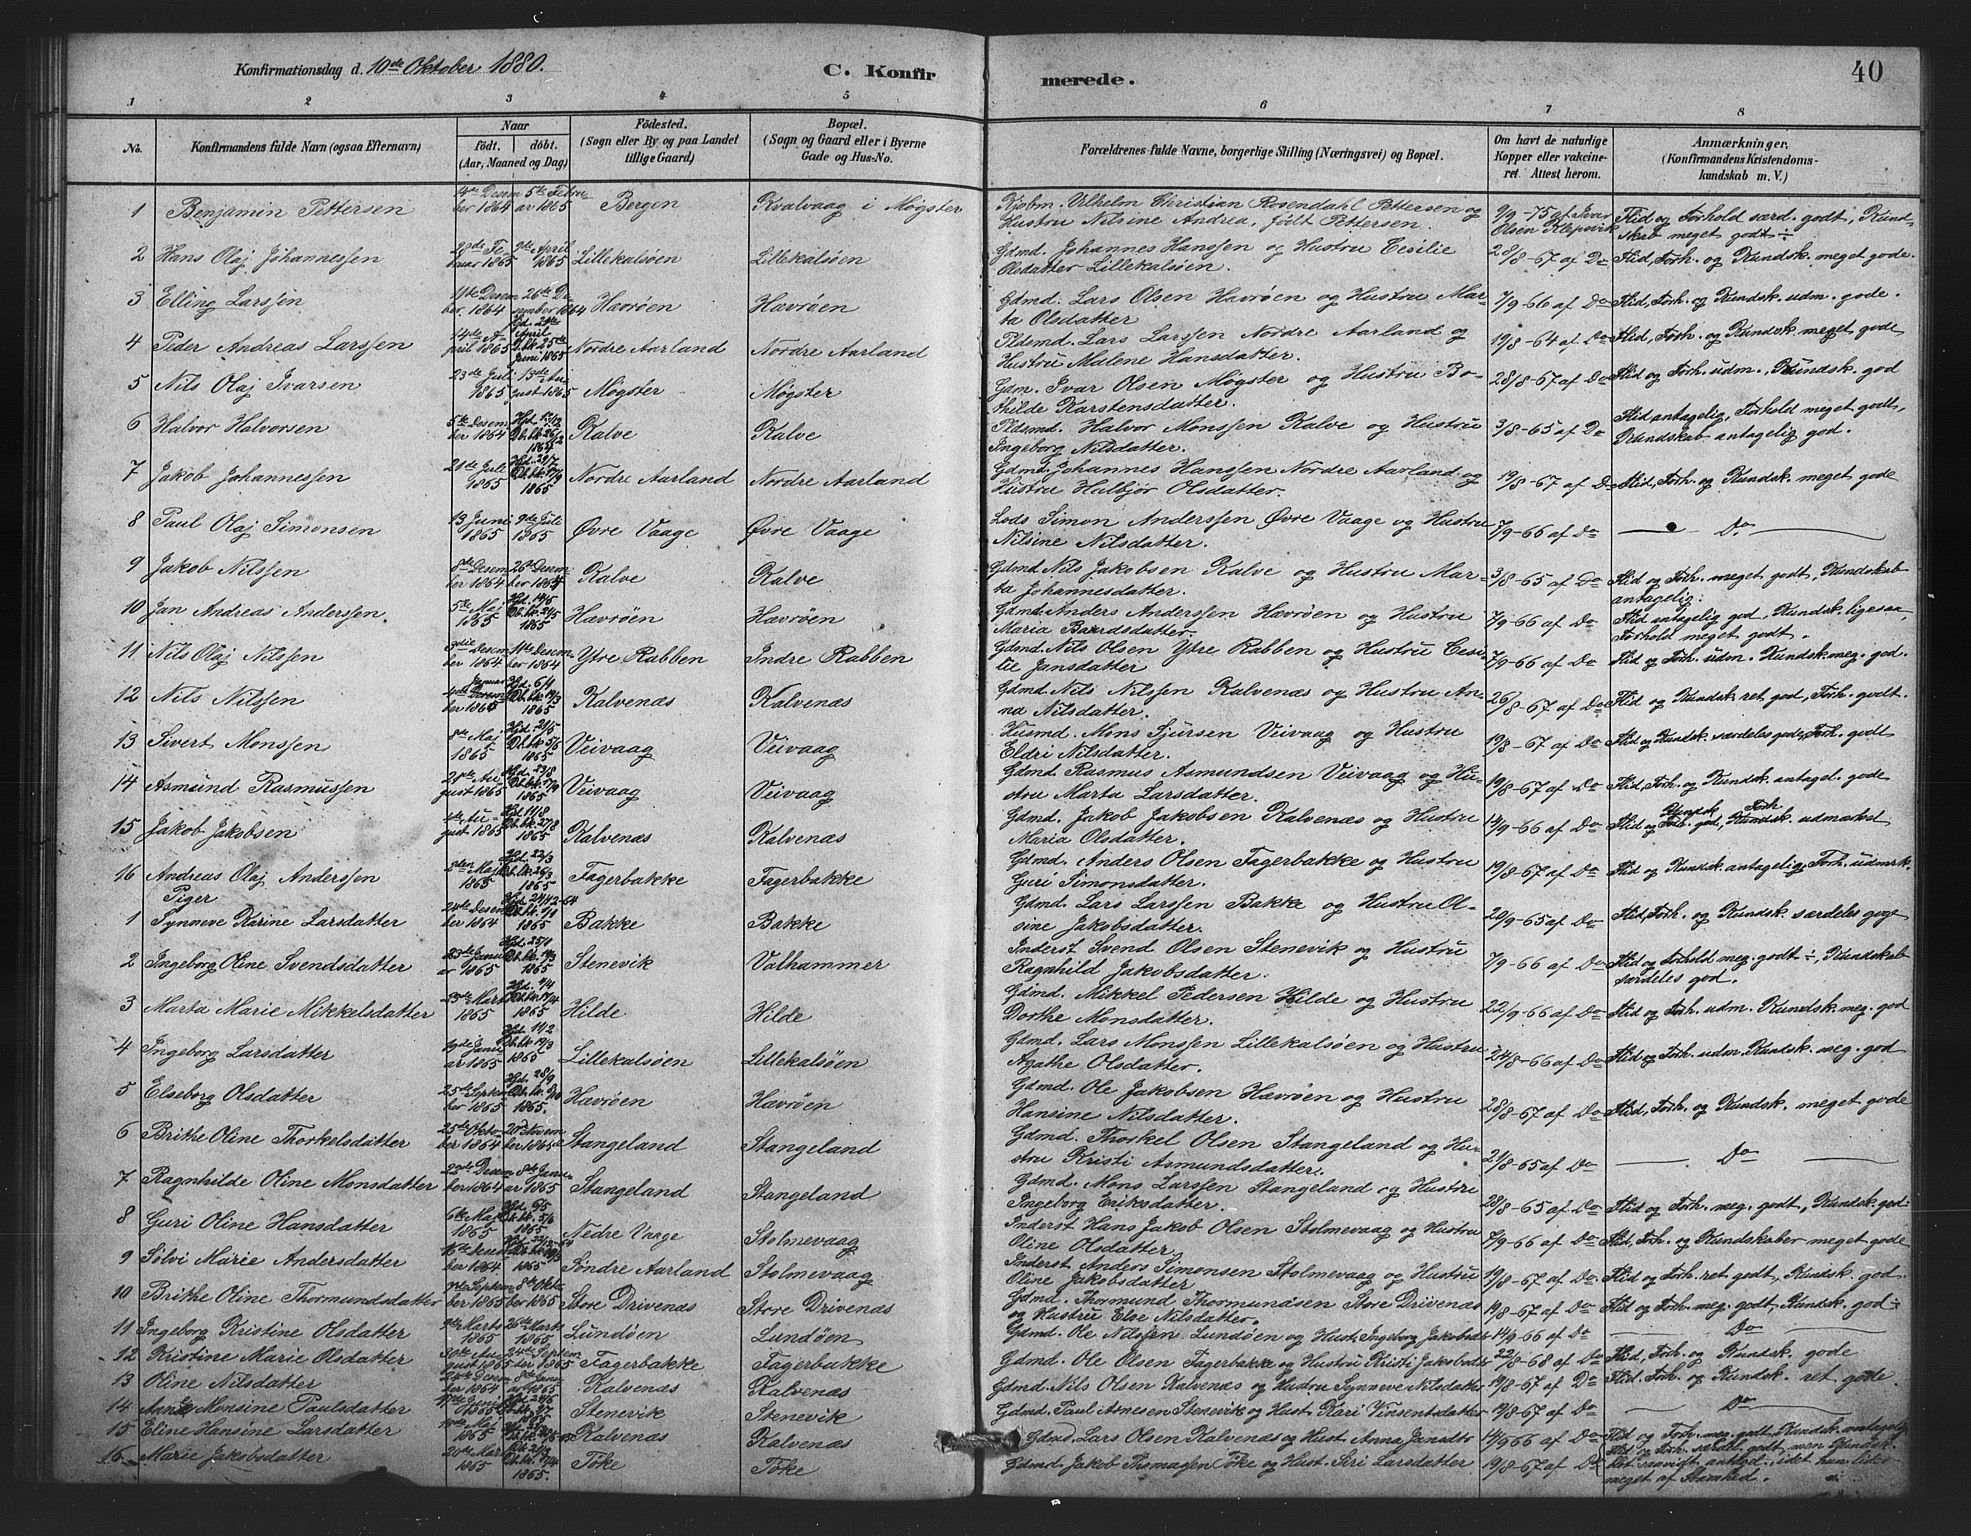 Konfirmationsdag d. 10de Oktober 1880. C. Konfirmerede. 40
1 2 3 4 5 6 7 8
No. Konfirmandens fulde Navn (ogsaa Efternavn) Naar födt. döbt. (Aar, Maaned og Dag) Födested. (Sogn eller By og paa Landet tillige Gaard) Bopæl. (Sogn og Gaard eller i Byerne Gade og Hus-No. Forældrenes fulde Navne, borgerlige Stilling (Næringsvei) og Bopæl. Om havt de naturlige Kopper eller vakcineret. Attest herom. Anmærkninger, (Konfirmandens Kristendomskundskab m. V.)
1 Benjamin Pettersen 14de Desember 1864 5te Februar 1865 Bergen Kvalvaag i Møgster Kjøbm. Vilhelm Christian Rosendahl Pettersen og Hustru Nilsine Andrea, født Pettersen. 9/9-75 af Ivar Olsen Klepsvik Flid og Forhold særd. godt, Kundskab meget godt ÷
2 Hans Olaj Johannessen 9de April 1865 Lillekalsøen Lillekalsøen Gdmd. Johannes Hanssen og Hustru Cesilie Olsdatter Lillekalsøen. 28/8-67 af Do Flid, Forh. og Kundsk. meget gode.
3 Elling Larssen 11te Desember 1864 26de Desember 1864 Havrøen Hævrøen Gdmd. Lars Olsen Havrøen og Hustru Marta Olsdatter 7/9-66 af Do Flid, Forh. og Kundsk. udm. gode.
4 Peder Andreas Larssen 14de April 1865 Hjd. 24de April Db. bk. 25de Juni 1865 Nordre Aarland Nordre Aarland Pldmd. Lars Larssen Nordre Aarland og Hustru Malene Hansdatter. 19/8-64 af Do Flid, Forh. og Kundsk. meget gode
5 Nils Olaj Ivarsen 23de Juli 1865 13de August 1865 Møgster Møgster Gdm. Ivar Olsen Møgster og Hustru Bothilde Karstensdatter. 28/8-67 af Do Flid og Forh. udm., Kundsk. god
6 Halvor Halvorsen 5te Desember 1864 Kalve Kalve Pldsmd. Halvor Monssen Kalve og Hustru Ingeborg Nilsdatter. 3/8-65 af Do Flid antagelig, Forhold meget godt, Kundskab antagelig god.
7 Jakob Johannessen 21de Juli 1865 Hjd. 29/7 Db. bk. 17/9 1865 Nordre Aarland Nordre Aarland Gdmd. Johannes Hanssen Nordre Aarland og Hustru Helbjør Olsdatter. 19/8-67 af Do Flid, Forh. og Kundsk. meget gode
8 Paul Olaj Simonsen 13 Juni 1865 9de Juli 1865 Øvre Vaage Øvre Vaage Lods Simon Anderssen Øvre Vaage og Hustru Nilsine Nilsdatter. 7/9-66 af Do Do
9 Jakob Nilssen 8de Desember 1864 26de Desember 1864 Kalve Kalve Gdmd Nils Jakobsen Kalve og Hustru Marta Johannesdatter. 3/8-65 af Do Flid og Forh. meget godt, Kundskab antagelig.
10 Jan Andreas Anderssen 5te Maj 1865 Hjd. 14/5 Db. bk. 21/5 1865 Hævrøen Hævrøen Gdmd. Anders Anderssen Hævrøen og Hustru Maria Baardsdatter. 7/9-66 af Do Flid antagelig god, Kundsk. ligesaa, Forhold meget godt.
11 Nils Olaj Nilssen 3die Desember 1864 11te Desember 1864 Ytre Rabben Indre Rabben Gdmd. Nils Olsen Ytre Rabben og Hustru Cesilie Jansdatter 7/9-66 af Do Flid og Forh. udm. Kundsk. meg. god.
12 Nils Nilssen Januar 1865 Hjd. 6/1 Db. bk. 19/3 1865 Kalvenæs Kalvenæs Gdmd. Nils Nilssen Kalvenæs og Hustru Anna Nilsdatter. 26/8-67 af Do Flid og Kundsk. ret god, Forh. godt.
13 Sivert Monssen 8de Maj 1865 Hjd. 21/5 Db. bk. 5/6 1865 Veivaag Veivaag Husmd. Mons Sjursen Veivaag og Hustru Eldri Nilsdatter. 19/8-67 af Do Flid og Kundsk. særdeles gode, Forh. godt
14 Asmund Rasmussen 21de August 1865 Hjd. 23/8 Db. bk. 17/9 1865 Veivaag Veivaag Gdmd. Rasmus Asmundsen Veivaag og Hustru Marta Larsdatter. 19/8-67 af Do Flid, Forh. og Kundsk. antagel. gode
15 Jakob Jakobsen August 1865 Hjd. 11/8 Db. bk. 27/8 1865 Kalvenæs Kalvenæs Gdmd. Jakob Jakobsen Kalvenæs og Hustru Maria Olsdatter. 14/9-66 af Do Flid og Kundsk. god, Forh. udmærket
16 Andreas Olaj Anderssen 1865 Hjd. 22/3 Db. bk. 26/3 1865 Fagerbakke Fagerbakke Gdmd. Anders Olsen Fagerbakke og Hustru Guri Simonsdatter. 19/8-67 af Do Flid og Kundsk. antagelig, Forh. udmærk.
Piger
1 Synneve Karine Larsdatter 24de Desember 1864 Hjd. 24/12-64 Db. bk. 1/1 1865 Bakke Bakke Gdmd. Lars Larssen Bakke og Hustru Olsine Jakobsdatter. 20/9-65 af Do Flid, Forh. og Kundsk. særdeles gode
2 Ingeborg Oline Svendsdatter 23de Januar 1865 Hjd. 25/1 Db. bk. 19/3 1865 Stenevik Valhammer Inderst Svend Olsen Stenevik og Hustru Ragnhild Jakobsdatter. 7/9-66 af Do Flid og Forhold meg. godt ÷, Kundskab særdeles god.
3 Marta Marie Mikkelsdatter Marts 1865 1865 Hilde Hilde Gdmd. Mikkel Pedersen Hilde og Hustru Dorthe Monsdatter. 22/9-66 af Do Flid og Forh. udm. Kundsk. meg. god
4 Ingeborg Larsdatter 19de Januar 1865 Hjd. 1/2 Db. bk. 19/3 1865 Lillekalsøen Lillekalsøen Gdmd. Lars Monssen Lillekalsøen og Hustru Agathe Olsdatter. 24/8-66 af Do Flid og Forh. udm. Kundsk. meg. god
5 Elseborg Olsdatter 25de September 1865 Hjd. 28/9 Db. bk. 8/10 1865. Havrøen Hævrøen Gdmd. Ole Jakobsen Hævrøen og Hustru Hansine Nilsdatter. 28/8-67 af Do Flid, Forh. og Kundsk. meget gode
6 Brithe Oline Thorkelsdatter 25de Oktober 1864 Stangeland Stangeland Gdmd. Thorkel Olsen Stangeland og Hustru Kristi Asmundsdatter. 21/8-65 af Do Do
7 Ragnhilde Oline Monsdatter 22de Desember 1864 8de Januar 1865 Stangeland Stangeland Gdmd. Mons Larssen Stangeland og Hustru Ingeborg Eriksdatter. 28/8-65 af Do Flid og Forh. meg. godt, Kundsk. god ÷
8 Guri Oline Hansdatter 6te Maj 1865 1865 Nedre Vaage Stolmevaag Inderst Hans Jakob Olsen Stolmevaag og Hustru Oline Olsdatter 7/9-66 af Do Flid, Forh. og Kundskaber meget gode
9 Sølvi Marie Andersdatter Desember 1864 1865 Söndre Aarland Stolmevaag Inderst Anders Simonsen Stolmevaag og Hustru Oline Jakobsdatter 19/8-67 af Do Flid og Forh. ret godt, Kundsk. god.
10 Brithe Oline Thormundsdatter September 1865 8de Oktober 1865 Store Drivenæs Store Drivenæs Gdmd. Thormund Thormundsen Store Drivenæs og Hustru Else Nilsdatter. 19/8-67 af Do Flid og Forh. meg. godt, Kundsk. god ÷
11 Ingeborg Kristine Olsdatter Marts 1865 26de Marts 1865 Lundøen Lundøen Gdmd. Ole Nilssen Lundøen og Hust. Ingeborg Jakobsdt. 14/9-66 af Do Do
12 Kristine Marie Olsdatter 30te August 1865 24de September 1865 Fagerbakke Fagerbakke Gdmd. Ole Olsen Fagerbakke og Hustru Kristi Jakobsdt. 22/8-68 af Do Flid, Forh. og Kundsk. gode
13 Oline Nilsdatter Desember 1864 8de Januar 1865 Kalvenæs Kalvenæs Gdmd. Nils Olsen Kalvenæs og Hustru Synneve Nilsdatter 19/8-67 af Do Flid, Forh. og Kundsk. ret gode.
14 Nonsine Paulsdatter 1865 Stenevik Stenevik Gdmd. Paul Arnesen Stenevik og Hust. Kari Vinsentsdatter 19/8-67 af Do Do
15 Eline Hansine Larsdatter Maj 1865 Kalvenæs Kalvenæs Gdmd. Lars Olsen Kalvenæs og Hust. Anna Jansdtr 14/9 66 af Do Flid og Forh. meg. godt, Kundsk. antagelig
16 Marie Jakobsdatter 20de Marts 1865 1865. Töke Töke Gdmd. Jakob Thomassen Töke og Hust. Siri Larsdatter 19/8-67 af Do Flid og Forh. særdl. godt, men Kundsk. antagl., idet hun lider meget af Stamhed.